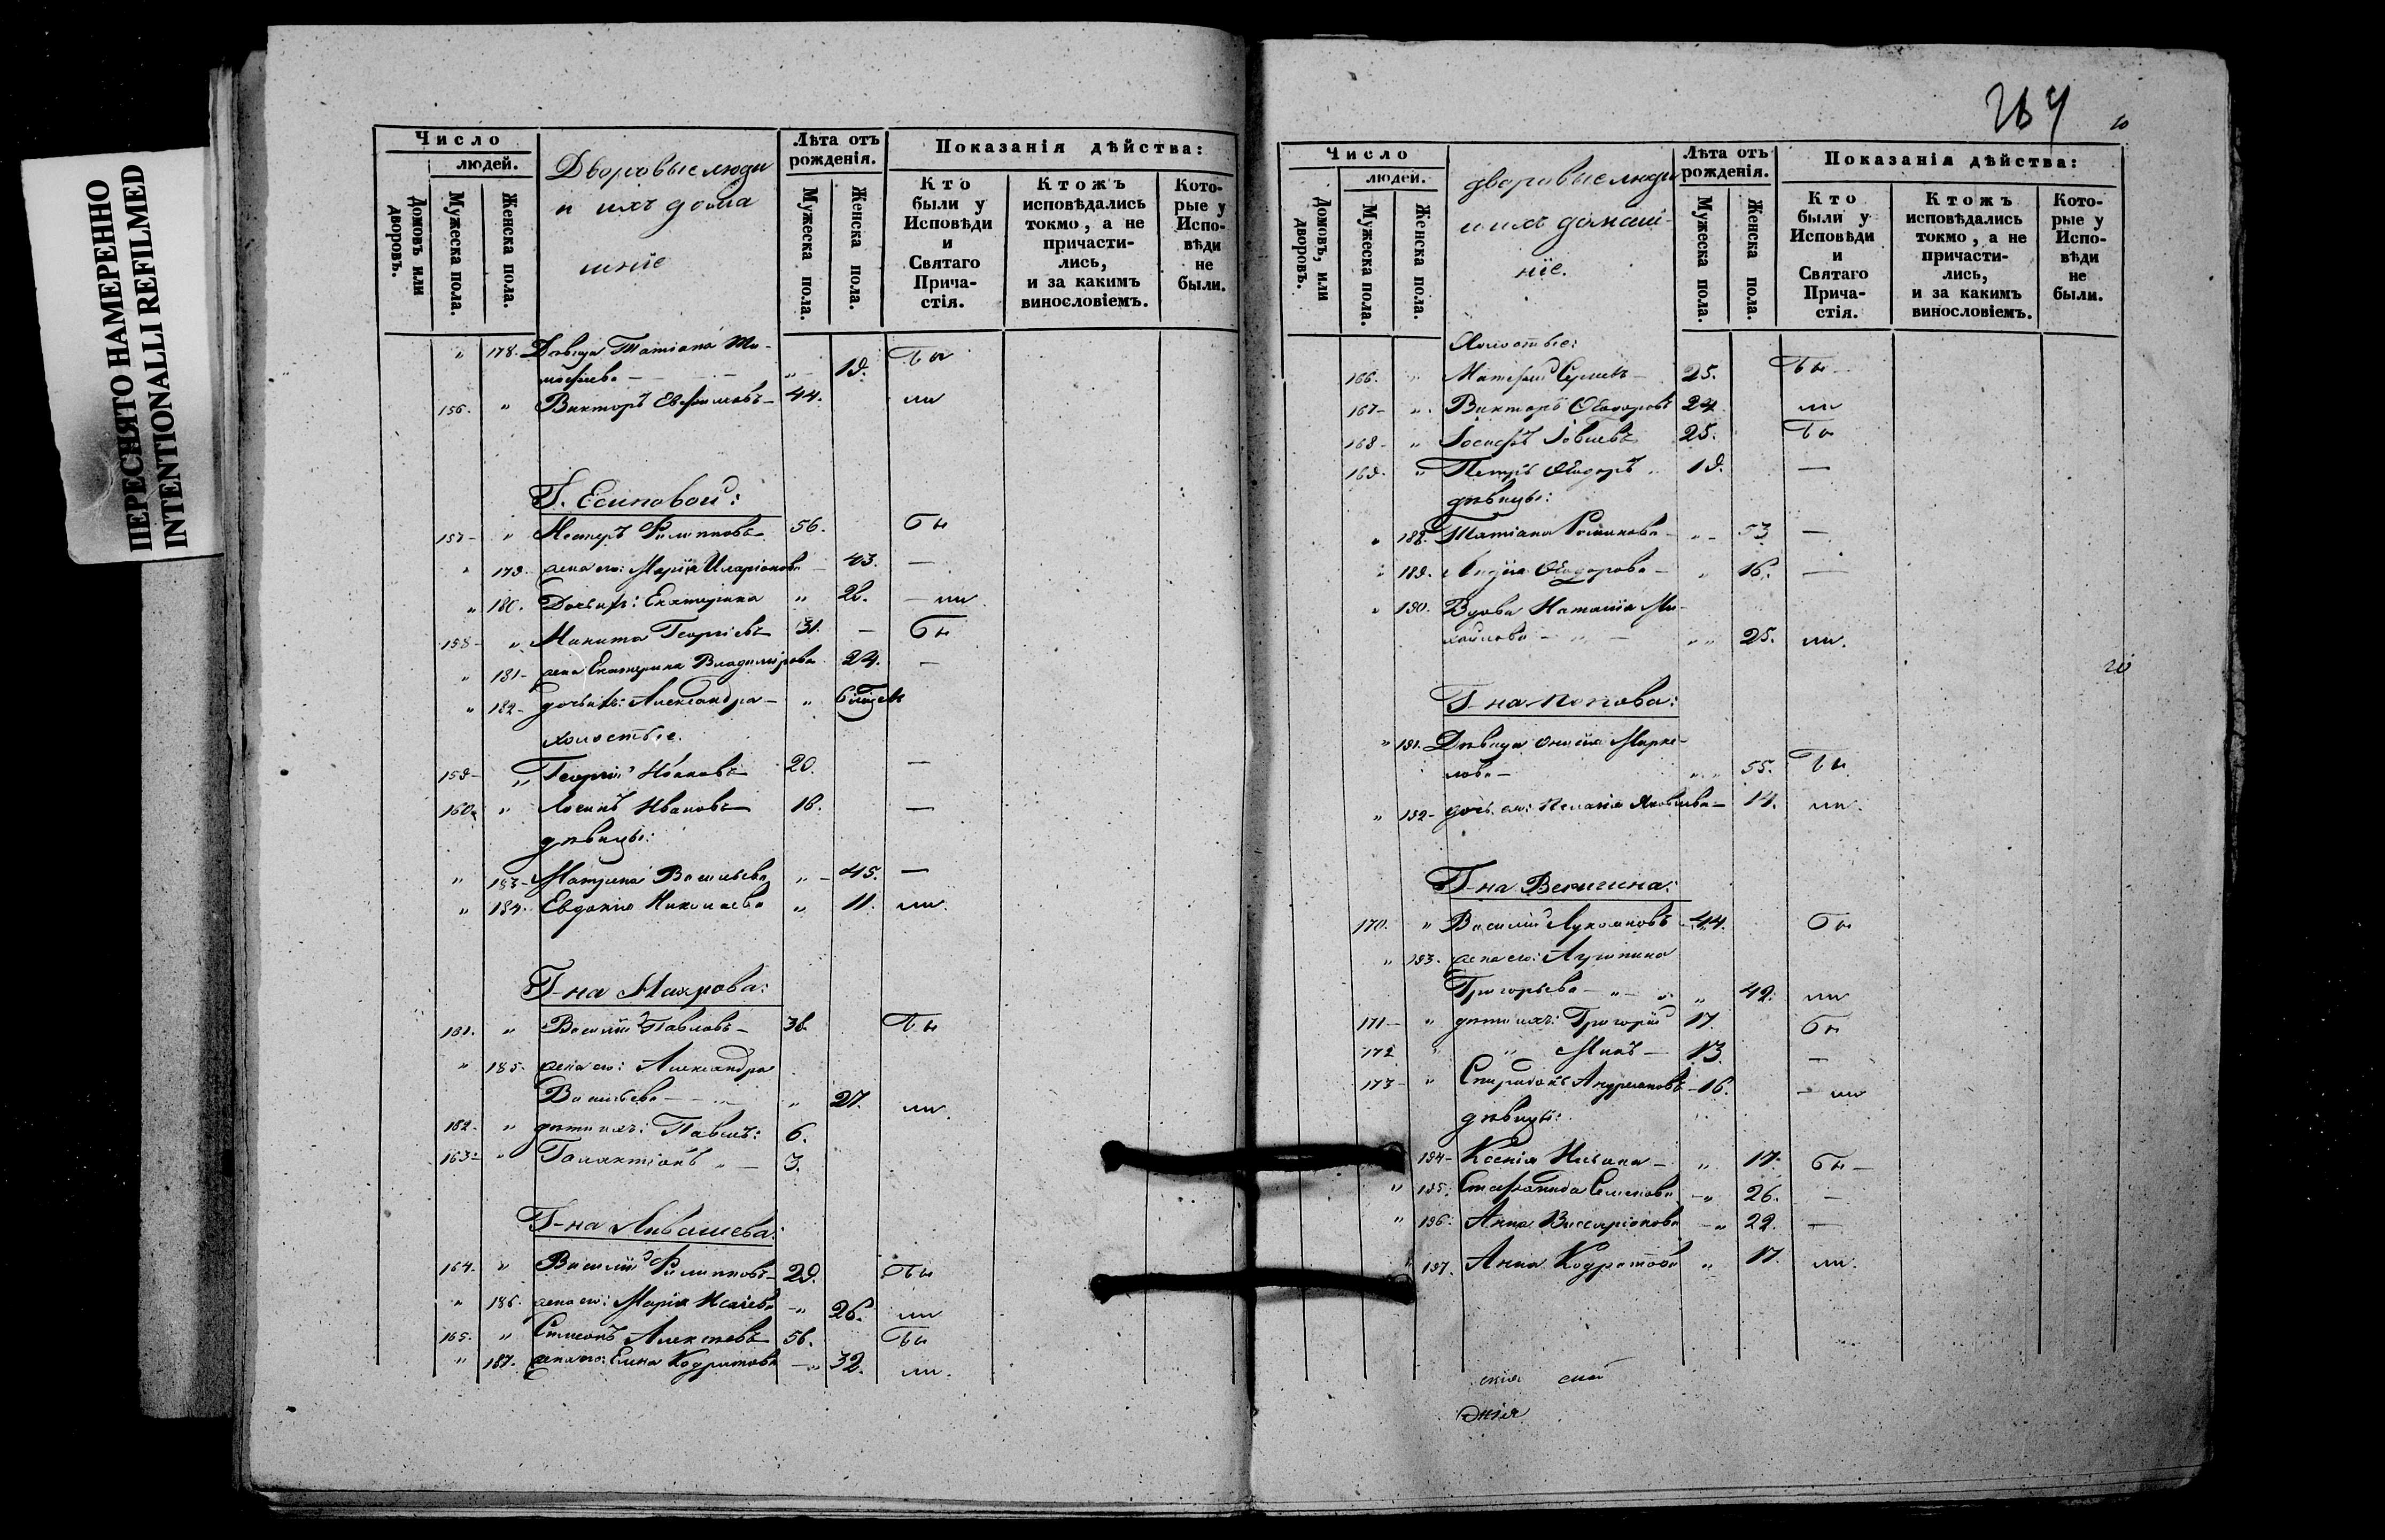 ПЕРЕСНЯТО НАМЕРЕННО
INTENTIONALLI REFILMED
Число
людей.
Домовъ или дворовъ.
Мужеска пола.
Женска пола.
Дворовые люди
и ихъ дома
шніе
Лѣта отъ рожденія.
Мужеска пола.
Женска пола.
Показанія дѣйства:
Кто были у Исповѣди и Святаго Прича-стія.
Ктожъ исповѣдались токмо, а не причасти-лись, и за какимъ винословіемъ.
Кото-рые у Испо-вѣди не были.
" 178. Дѣвица Татіана Ти-
мофеева — " 19. бы
156. " Викторъ Евфимовъ 44. ли
Г. Есиповой:
157 " Нестеръ Филиповъ 56. бы
" 179. жена его: Марія Иларіонова 43. —
" 180. Дочь ихъ: Екатерина " 2
158 " Никита Георгіевъ 31. — бы
" 181 жена Екатерина Владимірова 24. —
" 182 дочь ихъ: Александра "
холостые.
159 " Георгій Ивановъ 20. —
160 " Логинъ Ивановъ 16. —
дѣвицы:
" 183 Матрена Васильева " 45. —
" 184. Евдокія Николаева " 11. ли.
Г-на Махрова:
181. " Василій Павловъ 38 бы
" 185. жена его: Александра
Васильева " 27. ли.
182. " дети ихъ: Павелъ: 6.
163 " Галактіонъ " 3.
Г-на Ливашева:
164. " Василій Филиповъ 29. бы
" 186. жена его: Марія Исаіева " 26. ли
165. " Симеонъ Алексеевъ 56. бы
" 187. жена его: Елена Кодратова " 32. ли.
264
10
Число
людей.
Домовъ, или дворовъ.
Мужеска пола.
Женска пола.
дворовые люди
и ихъ домаш-
ніе.
Лѣта отъ рожденія.
Мужеска пола.
Женска пола.
Показанія дѣйства:
Кто были у Исповѣди и Святаго Прича-стія.
Ктожъ исповѣдались токмо, а не причасти-лись, и за какимъ винословіемъ.
Кото-рые у Испо-вѣди не были.
Холостые:
166. " Матфей 25. бы
167 " Викторъ Ѳеодоровъ 24 ли
168 " Іосифъ Іовлевъ 25. бы
169. " Петръ Ѳеодоръ 19. —
дѣвицы:
" 188. Татіана Романова " 53 —
" 189. Лидія Ѳеодорова " 16. —
" 190. Вдова Наталія Ми-
хайлова " 25. ли.
20
Г-на Попова:
" 191. Дѣвица Марке-
лова " 55. бы
" 192 дочь ея: Пелагія Яковлева 14. ли.
Г-на Веригина:
170. " Василій Лукояновъ 44. бы
" 193. жена его: Агрипина
Григорьева " 42. ли
171 " дети ихъ: Григорій 17. бы
172 " " Минъ 13. —
173 " Спиридонъ Андреяновъ 16. — ли
дѣвицы:
194 Ксенія " 17. бы —
" 195. Стефанида Семенова " 26. —
" 196. Анна Висаріонова " 22. —
" 197. Анна Кодратова " 17. ли.